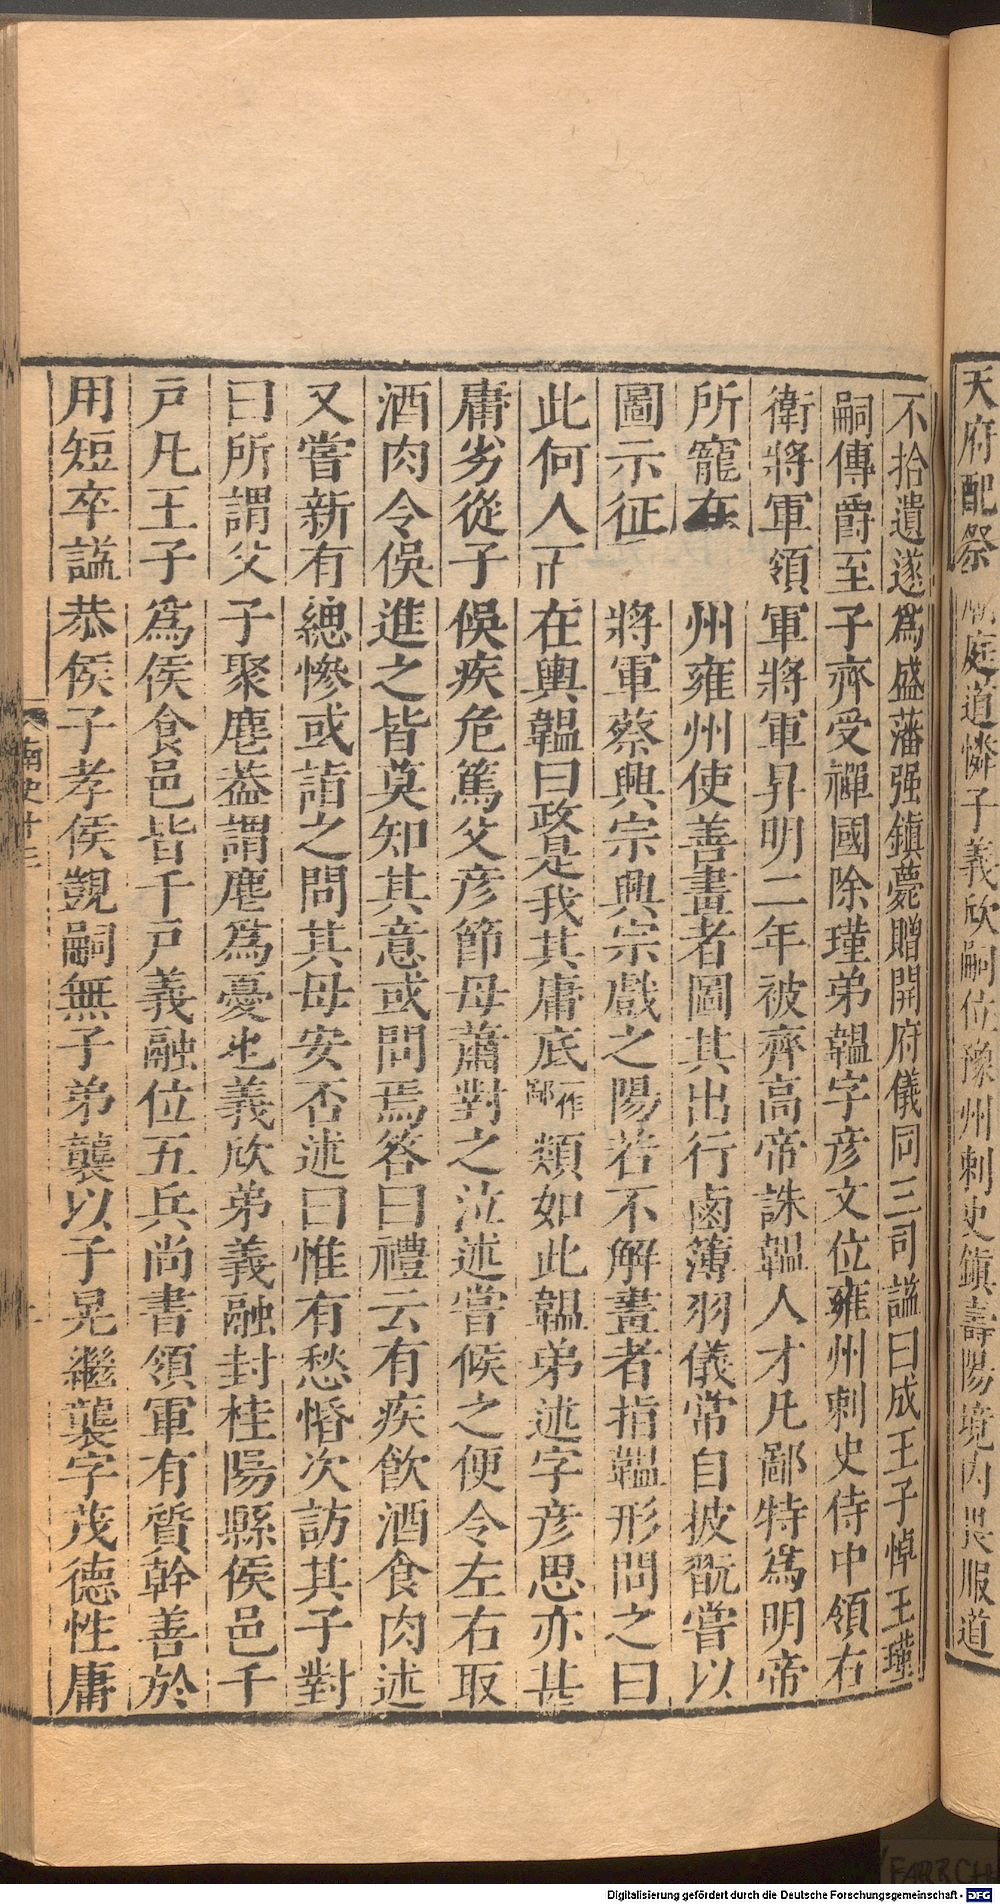 天府配祭庭道憐子義欣嗣位豫州刺史鎮壽陽境內畏服道
不拾遺遂爲盛藩强鎮薨贈開府儀同三司諡曰成王子悼王瑾
嗣傳爵至子齊受禪國除瑾弟韞字彥文位雍州刺史侍中領右
衛將軍領軍將軍昇明二年被齊高帝誅韞人才凡鄙特爲明帝
所寵在州雍州使善畫者圖其出行鹵簿羽儀常自披翫嘗以
圖示征將軍蔡興宗興宗戲之陽若不解畫者指韞形問之曰
此何人在輿韞曰政是我其庸底一作鄙類如此韞弟述字彥思亦甚
庸劣從子俁疾危篤父彥節母蕭對之泣述嘗候之便令左右取
酒肉令俁進之皆莫知其意或問焉答曰禮云有疾飲酒食肉述
又嘗新有緦慘或詣之問其母安否述曰惟有愁惛次訪其子對
曰所謂父子聚麀葢謂麀爲憂也義欣弟義融封桂陽縣侯邑千
戸凡王子爲侯食邑皆千戸義融位五兵尚書領軍有質幹善於
用短卒諡恭侯子孝侯覬嗣無子弟襲以子晃繼襲字茂德性庸
南史十三
Digitalisierung gefördert durch die Deutsche Forschungsgemeinschaft - DFG